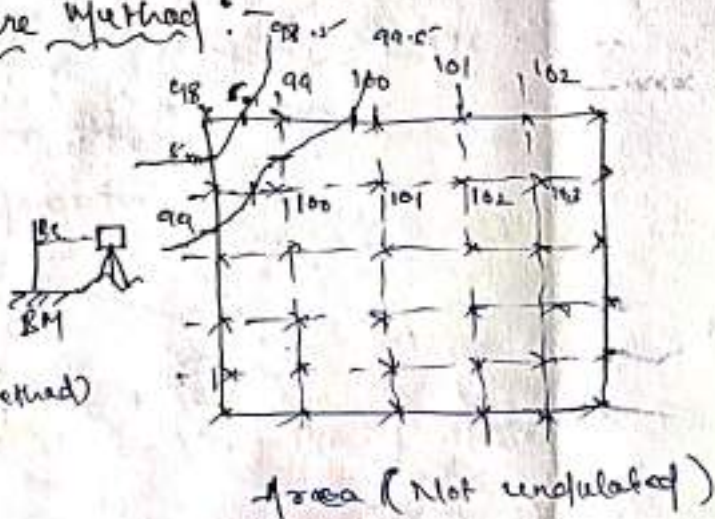 re Method :-
98.5 99.5
98 99 100 101 102
5m
99 100 101 102 103
BS
BM
ethod)
Area (Not undulated)